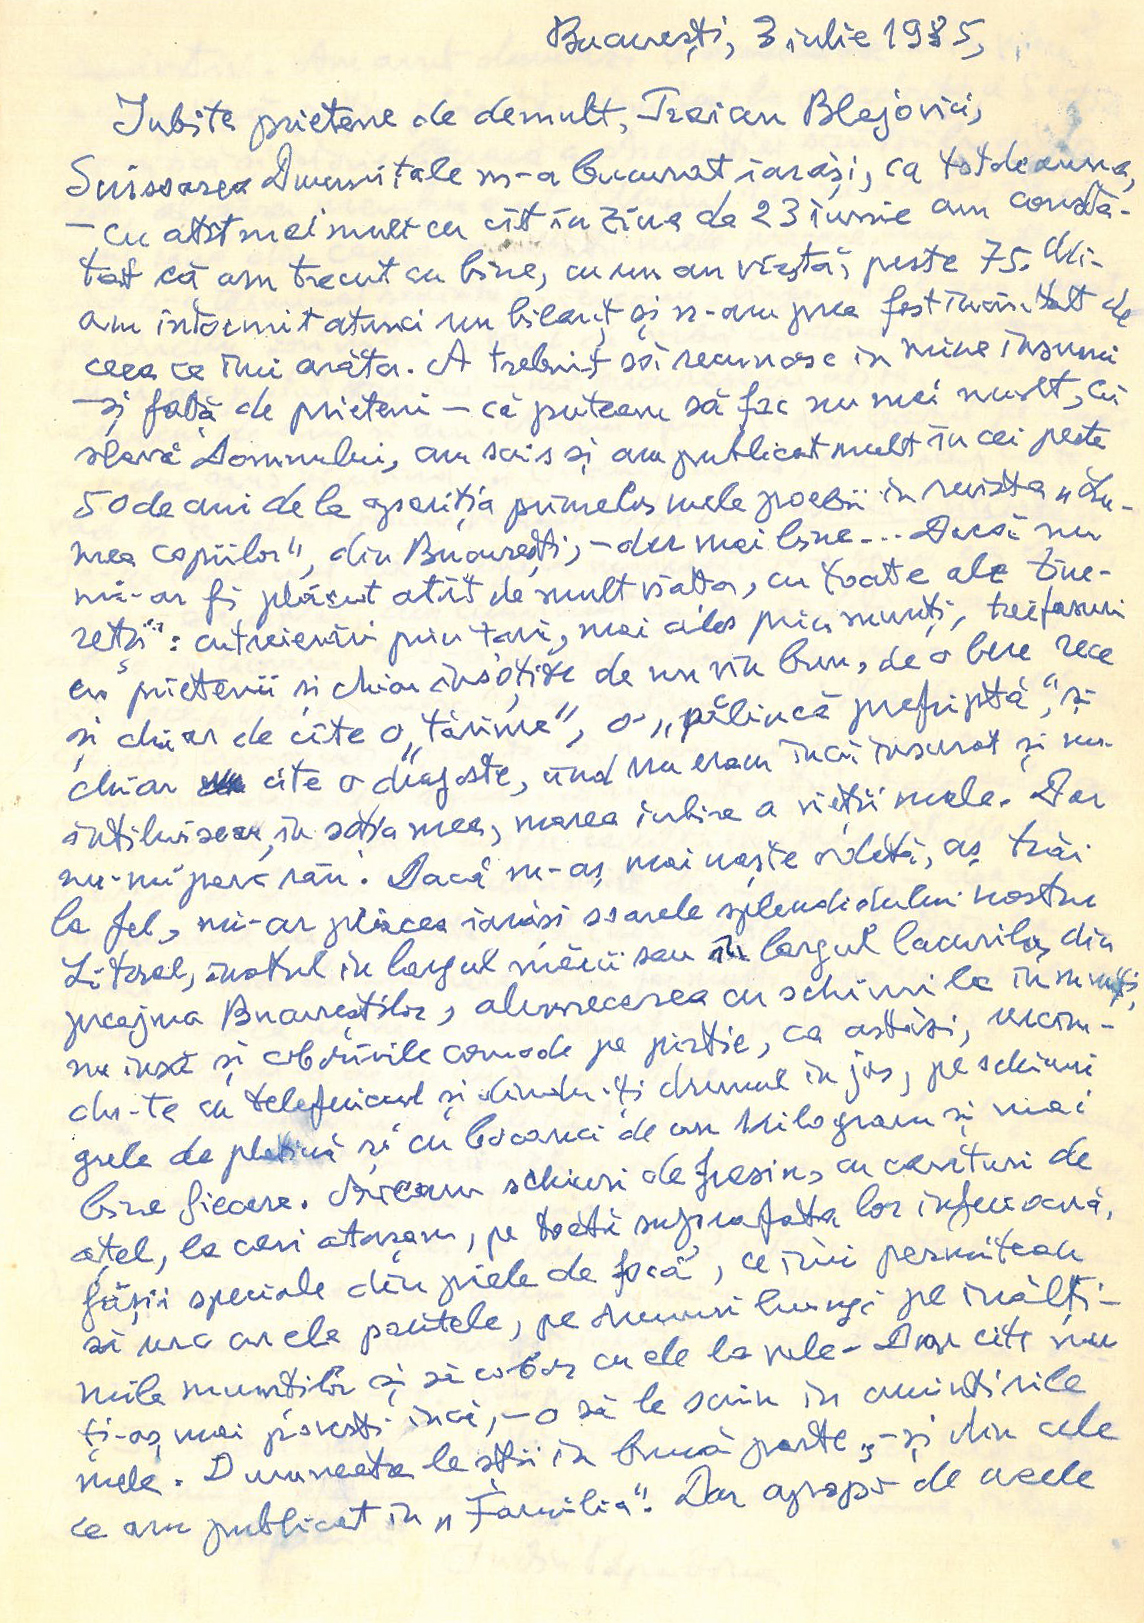 București, 3 iulie 1985,
Iubite prietene de demult, Traian Blajovici,
Scrisoarea Dumnitale m-a bucurat iarăși, ca totdeauna,
– cu atît mai mult cu cît în ziua de 23 iunie am consta-
tat că am trecut cu bine, cu un an viață, peste 75. Mi-
am întocmit atunci un bilanț și n-am prea fost încîntat de
ceea ce îmi arăta. A trebuit să recunosc în mine însumi
– și față de prieteni – că puteam să fac nu mai mult, că
slavă Domnului, am scris și am publicat mult în cei peste
50 de ani de la apariția primelor mele poezii în revista „Lu-
mea copiilor", din București, – dar mai bine... Dacă nu
mi-ar fi plăcut atît de mult viața, cu toate ale tine-
reții": cutreierări prin țară, mai ales prin munți, taifasuri
cu prietenii și chiar însoțite de un vin bun, de o bere rece
și chiar de cîte o „tărime", o „pălincă prefriptă", și
chiar cîte o dragoste, cînd nu eram încă însurat și nu-
întîlnisem, în soția mea, marea iubire a vieții mele. Dar
nu-mi pare rău. Dacă m-aș mai naște odată, aș trăi
la fel, mi-ar plăcea iarăși soarele splendidului nostru
Litoral, înotul în largul mării sau în largul lacurilor din
preajma Bucureștilor, alunecarea cu schiurile în munți,
nu însă și coborîrile comode pe pîrtie, ca astăzi, urcîn-
du-te cu telefericul și dîndu-ți drumul în jos, pe schiuri
grele de platină și cu bocanci de un kilogram și mai
bine fiecare. Aveam schiuri de frasin, cu canturi de
oțel, la cari atașam, pe toată suprafața lor inferioară,
fășii speciale din piele de focă, ce îmi permiteau
să urc cu ele pantele, pe drumuri lungi pe înălți-
mile munților și să cobor cu ele la vale. Dar cîte nu
ți-aș mai povesti încă, – o să le scriu în amintirile
mele. Dumneata le știi în bună parte, – și din cele
ce am publicat în „Familia". Dar apropo de acele